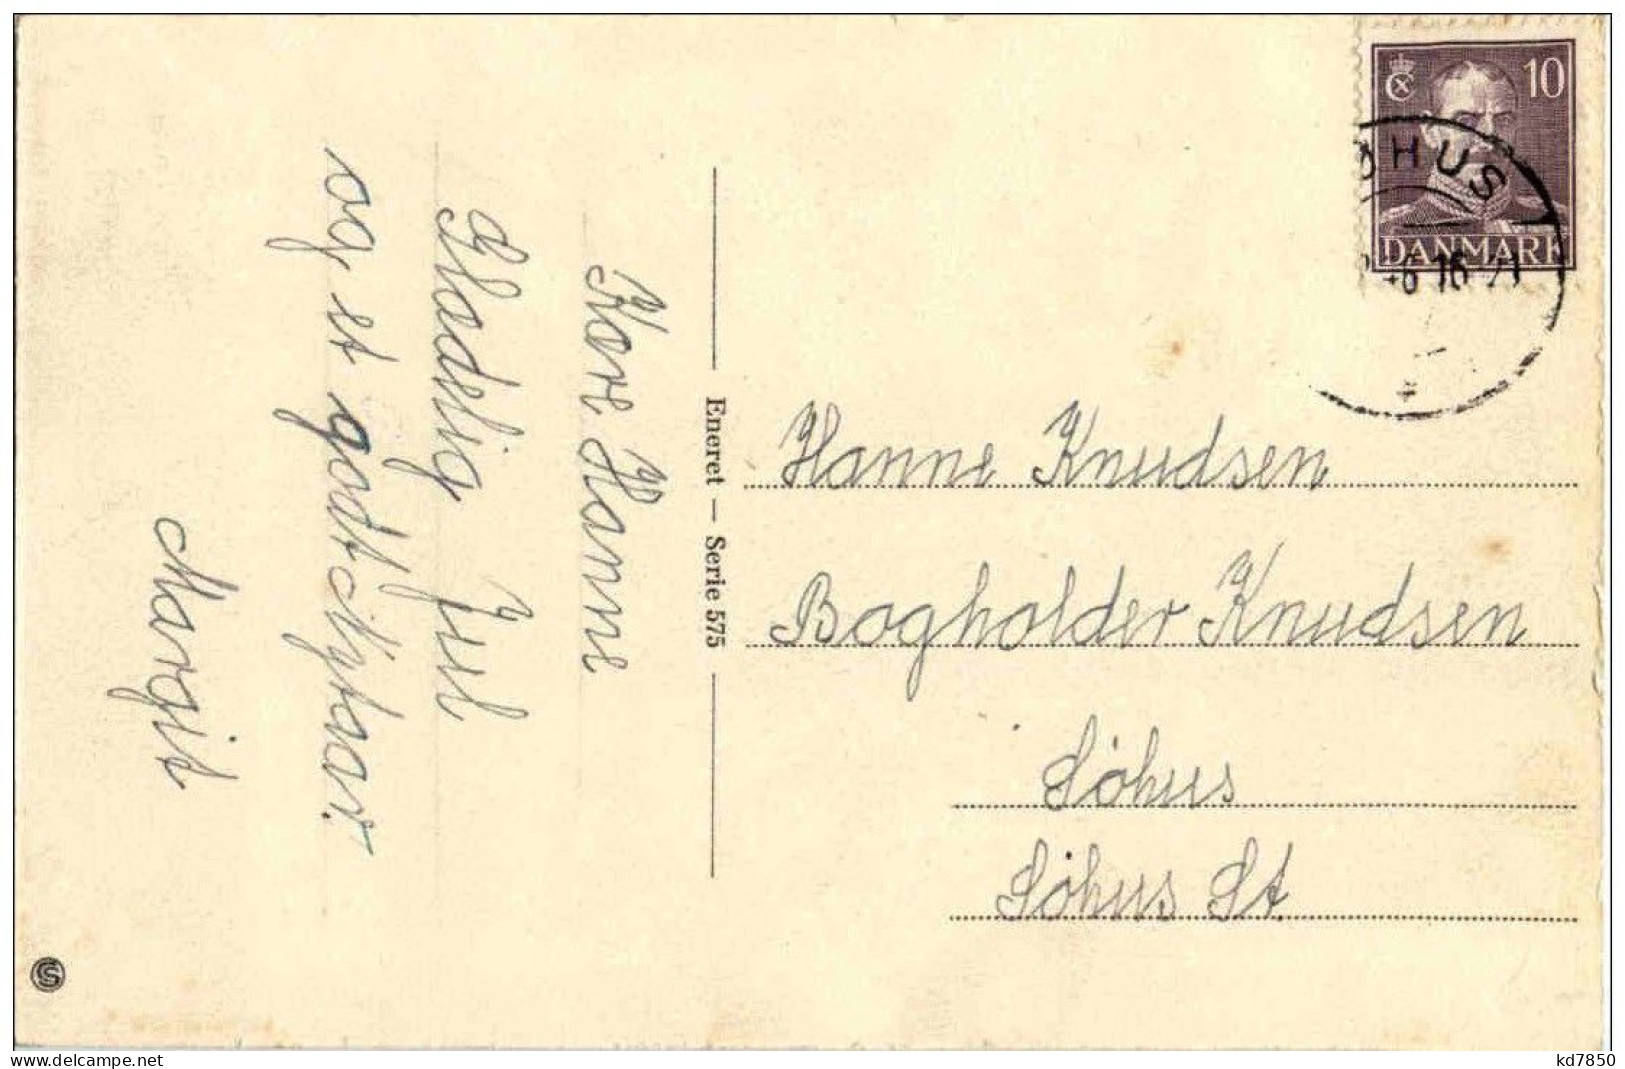 Kære Hanne
Glædelig Jul
og et godt Nytaar.
Margit
Eneret — Serie 575
10
DANMARK
ØHUS
Hanne Knudsen
Bogholder Knudsen
Söhus
Söhus St
S
www.delcampe.net
kd7850